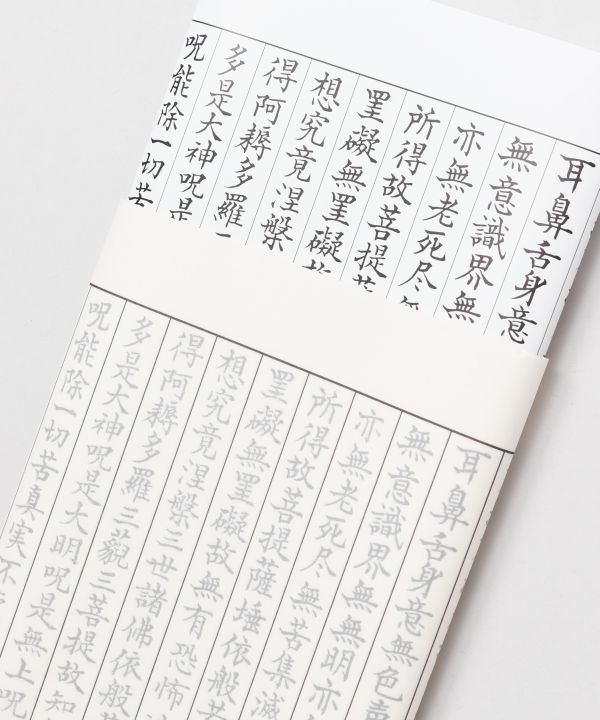 耳鼻舌身意
無意識界無
亦無老死尽無
所得故菩提薩
罣礙無罣礙故
想究竟涅槃
得阿耨多羅三
多是大神呪是
呪能除一切苦
耳鼻舌身意無色声
無意識界無無明亦
亦無老死尽無苦集滅
所得故菩提薩埵依般若
罣礙無罣礙故無有恐怖
想究竟涅槃三世諸佛依般若
得阿耨多羅三藐三菩提故知
多是大神呪是大明呪是無上呪
呪能除一切苦真実不